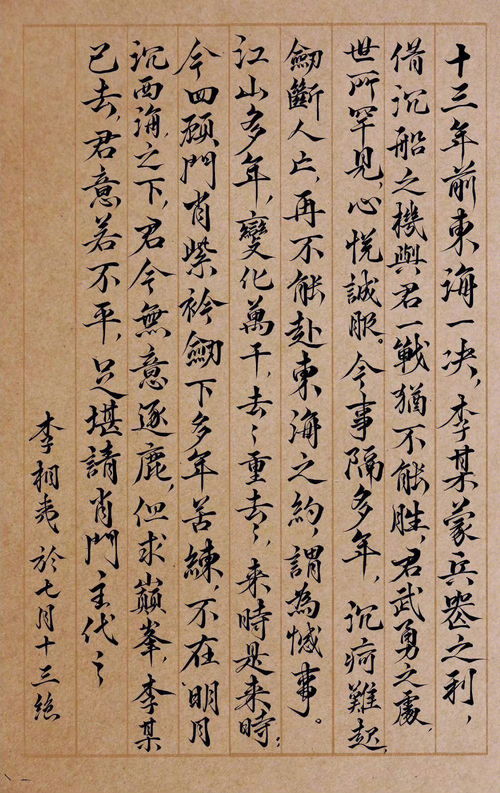 十三年前東海一决，李某蒙兵器之利，
借沉船之機與君一戰猶不能勝，君武勇之處，
世所罕見，心悅誠服。今事隔多年，沉疴難起，
劒斷人亡，再不能赴東海之約，謂為憾事。
江山多年，變化萬千，去〻重去〻，来時是来時；
今四顧門肖紫衿劒下多年苦練，不在明月
沉西海之下，君今無意逐鹿，但求巔峯，李某
已去，君意若不平，足堪請肖門主代〻
李相夷於七月十三絕